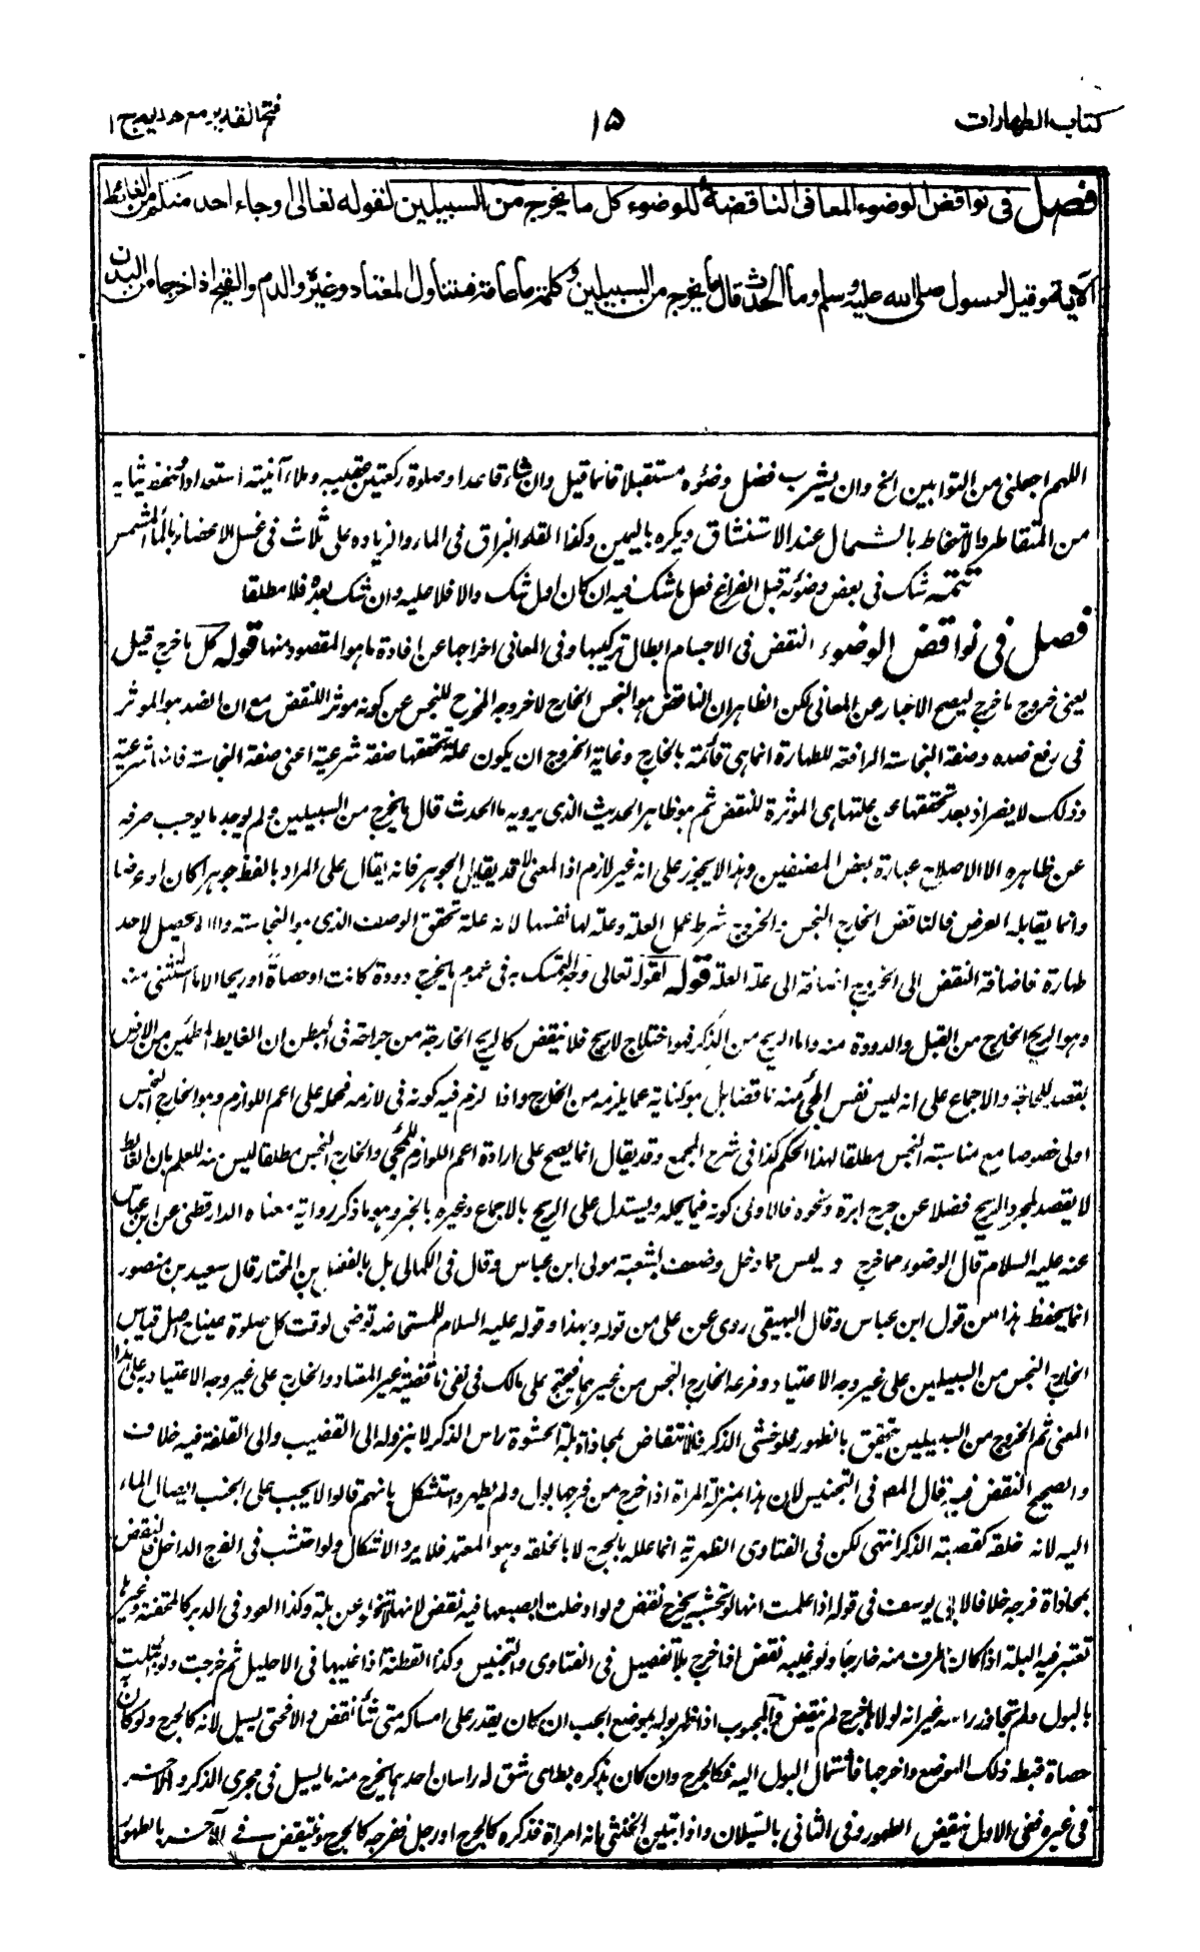 كتاب الطهارات
۱۵
فتح القدير مع هدايه ج ۱
فصل في نواقض الوضوء المعاني الناقضة للوضوء كل ما يخرج من السبيلين لقوله تعالى او جاء احد منكم من الغائط
الآية وقيل لرسول صلى الله عليه وسلم وما الحدث قال ما يخرج من السبيلين وكلمة ما عامة فتتناول المعتاد وغيره والدم والقيح اذا خرجا من البدن
اللهم اجعلني من التوابين الخ وان يشرب فضل وضوئه مستقبلا قائما قيل وان شاء قاعدا وصلوة ركعتين عقيبه وملء آنيته استعدادا وحفظ ثيابه
من المتقاطر والامتخاط بالشمال عند الاستنشاق ويكره باليمين وكذا القاء البزاق في الماء والزيادة على ثلاث في غسل الاعضاء وبالماء المشمس
تتمة شك في بعض وضوئه قبل الفراغ فعل ما شك فيه ان كان اول شك والا فلا عليه وان شك بعده فلا مطلقا
فصل في نواقض الوضوء النقض في الاجسام ابطال تركيبها وفي المعاني اخراجها عن افادة ما هو المقصود منها قوله كل ما خرج قيل
يعني خروج ما خرج ليصح الاخبار عن المعاني لكن الظاهر ان الناقض هو النجس الخارج لا خروجه المخرج للنجس عن كونه موثر اللنقض مع ان الضد هو الموثر
في رفع ضده وصفة النجاسة الرافعة للطهارة انما هي قائمة بالخارج وغاية الخروج ان يكون علة تحققها صفة شرعية اعني صفة النجاسة فانها شرعية
وذلك لا يضر اذ بعد تحققها عن علتها هي الموثرة للنقض ثم هو ظاهر الحديث الذي يرويه ما الحدث قال ما يخرج من السبيلين ولم يوجد ما يوجب صرفه
عن ظاهره الا الاصلاح عبارة بعض المصنفين وهذا لا يجوز على انه غير لازم اذ المعنى لا قد يقابل الجوهر فانه يقال على المراد باللفظ جوهرا كان او عرضا
وانما يقابله العرض فالناقض الخارج النجس والخروج شرط عمل العلة وعلة لها نفسها لانه علة تحقق الوصف الذي هو النجاسة والا لم يحصل لاحد
طهارة فاضافة النقض الى الخروج اضافة الى علة العلة قوله لقوله تعالى وجه التمسك به في عموم ما يخرج دودة كانت او حصاة او ريحا الا ما استثنى منه
وهو الريح الخارج من القبل والدودة منه واما الريح من الذكر فهو اختلاج لا ريح فلا ينقض كالريح الخارجة من جراحة في البطن ان الغايط المطمئن من الارض
يقصد للحاجة والاجماع على انه ليس نفس المجئ منه ناقضا بل هو كناية عما يلزمه من الخارج واذا لزم فيه كونه في لازمه فحمله على اعم اللوازم وهو الخارج النجس
اولى خصوصا مع مناسبة النجس مطلقا لهذا الحكم كذا في شرح المجمع وقد يقال انما يصح على ارادة اعم اللوازم للمجئ والخارج النجس مطلقا ليس منه للعلم بان الغائط
لا يقصد لمجرد الريح فضلا عن جرح ابرة ونحوه فالاولى كونه فيما يحله ويستدل على الريح بالاجماع وغيره بالخبر وهو ما ذكر رواية معناه الدارقطني عن ابن عباس
عنه عليه السلام قال الوضوء مما خرج وليس مما دخل وضعف بشعبة مولى ابن عباس وقال في الكمال بل بالفضل بن المختار قال سعيد بن منصور
انما يحفظ هذا من قول ابن عباس وقال البيهقي روي عن علي من قوله وبهذا وقوله عليه السلام للمستحاضة توضئي لوقت كل صلوة عينا اصل قياس
الخارج النجس من السبيلين على غير وجه الاعتياد وفرعه الخارج النجس من غيرهما فيحتج على مالك في نفي ناقضية غير المعتاد والخارج على غير وجه الاعتياد به على هذا
المعنى ثم الخروج من السبيلين يتحقق بالظهور فلو حشي الذكر فالانتقاض بمحاذاة بلة الحشوة راس الذكر لا بنزوله الى القضيب والى القلفة فيه خلاف
والصحيح النقض فيه قال المص في التجنيس لان هذا بمنزلة المرأة اذا خرج من فرجها بول ولم يظهر واستشكل بانهم قالوا لا يجب على الجنب ايصال الماء
اليه لانه خلقة كقصبة الذكر انتهى لكن في الفتاوى الظهيرية انما علله بالحرج لا بالخلقة وهو المعتمد فلا يرد الاشكال ولو احتشت في الفرج الداخل فالنقض
بمحاذاة حرفه خلافا لابي يوسف في قوله اذا علمت انها لو لم تحشه يخرج نقض ولو ادخلت اصبعها فيه نقض لانها لا تخلو عن بلة وكذا العود في الدبر كالمحقنة وغيره
تعتبر فيه البلة اذا كان طرف منه خارجا ولو غيبه نقض اذا خرج بلا تفصيل في الفتاوى والتجنيس وكذا القطنة اذا غيبها في الاحليل ثم خرجت ولو ابتلت
بالبول ولم تجاوز راسه غير انه لولاها خرج لم ينقض والمجبوب اذا ظهر بوله بموضع الجب ان كان يقدر على امساكه متى شاء نقض والا فحتى يسيل لانه كالجرح ولو كان
حصاة فبط ذلك الموضع واخرجها فاستمال البول اليه فكالجرح وان كان بذكره بط اي شق له راسان احدهما يخرج منه ما يسيل في مجرى الذكر والآخر
في غيره ففي الاول ينقض الظهور وفي الثاني بالسيلان واذا تبين الخنثى بانه امرأة فذكره كالجرح او رجل ففرجه كالجرح وينتقض في الآخر بالظهور